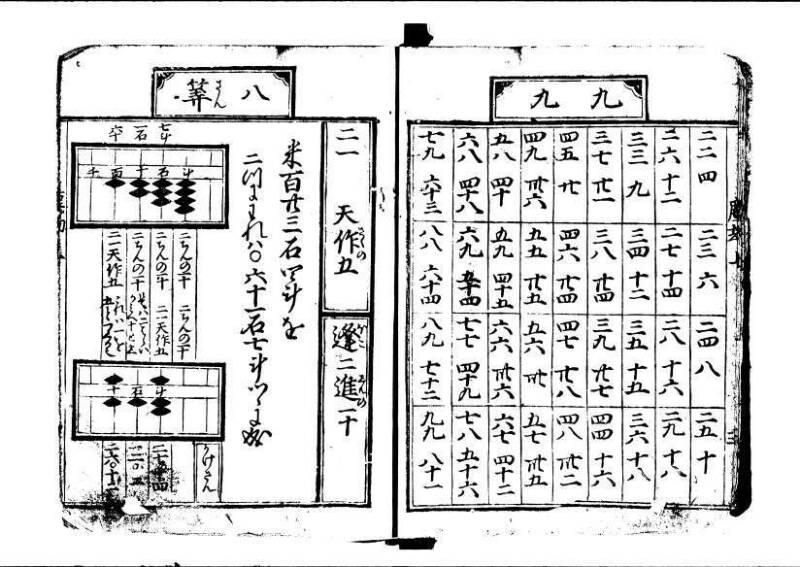 九九
二二 四 二三 六 二四 八 二五 十
二六 十二 二七 十四 二八 十六 二九 十八
三三 九 三四 十二 三五 十五 三六 十八
三七 廿一 三八 廿四 三九 廿七 四四 十六
四五 廿 四六 廿四 四七 廿八 四八 卅二
四九 卅六 五五 廿五 五六 卅 五七 卅五
五八 四十 五九 四十五 六六 卅六 六七 四十二
六八 四十八 六九 五十四 七七 四十九 七八 五十六
七九 六十三 八八 六十四 八九 七十二 九九 八十一
八算
さん
二一 天作五
逢二進一十
米百廿三石四斗を
二つにわれハ〇六十一石七斗つゝに成
千百十石斗
二ちんの一十 二ちんの一十
二ちんの一十 二一天作五
二ちんの一十
二一天作五
十石斗
かけさん